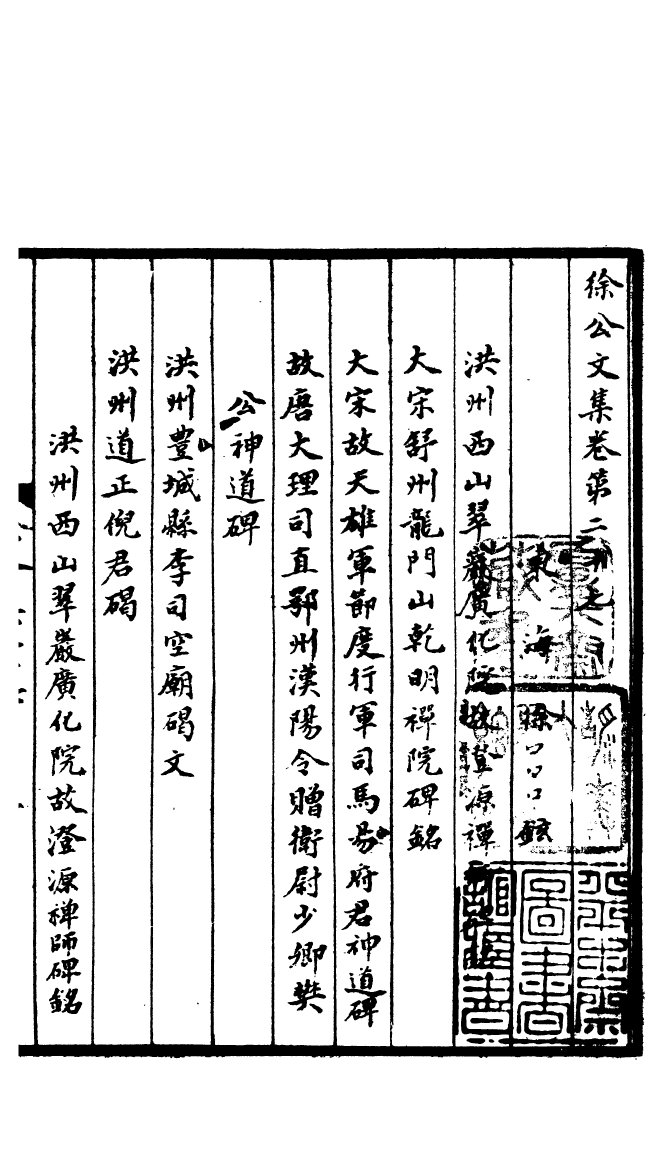 徐公文集卷第二十七
東海徐鉉
洪州西山翠巖廣化院故澄源禪師碑銘
大宋舒州龍門山乾明禪院碑銘
大宋故天雄軍節度行軍司馬易府君神道碑
故唐大理司直鄂州漢陽令贈衛尉少卿樊
公神道碑
洪州豊城縣李司空廟碣文
洪州道正倪君碣
洪州西山翠巖廣化院故澄源禅師碑銘